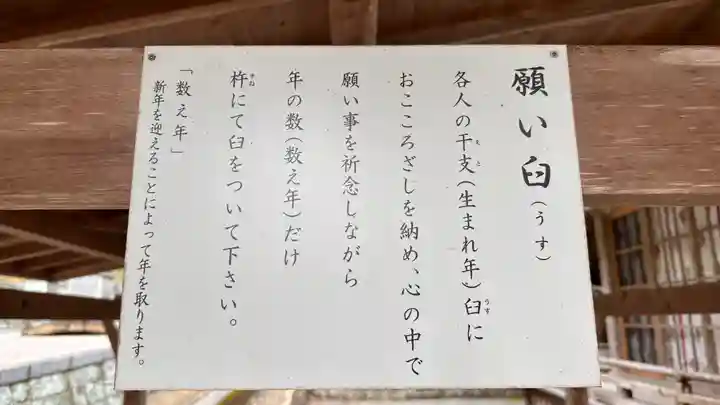 願い臼（うす）
各人の干支（生まれ年）臼に
おこころざしを納め、心の中で
願い事を祈念しながら
年の数（数え年）だけ
杵にて臼をついて下さい。
「数え年」
新年を迎えることによって年を取ります。